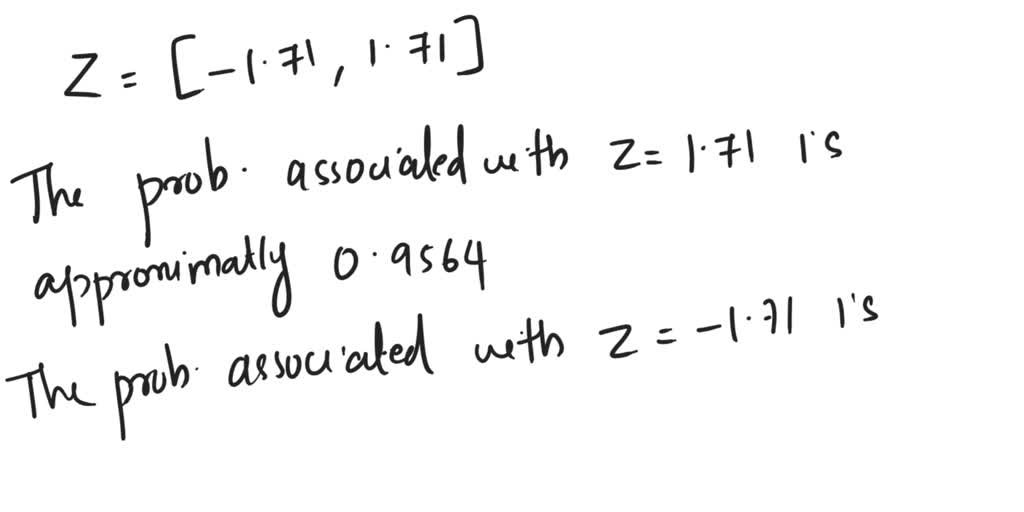 Z = [-1.71, 1.71]
The prob. associated with Z = 1.71 is
approximatly 0.9564
The prob. associated with Z = -1.71 is